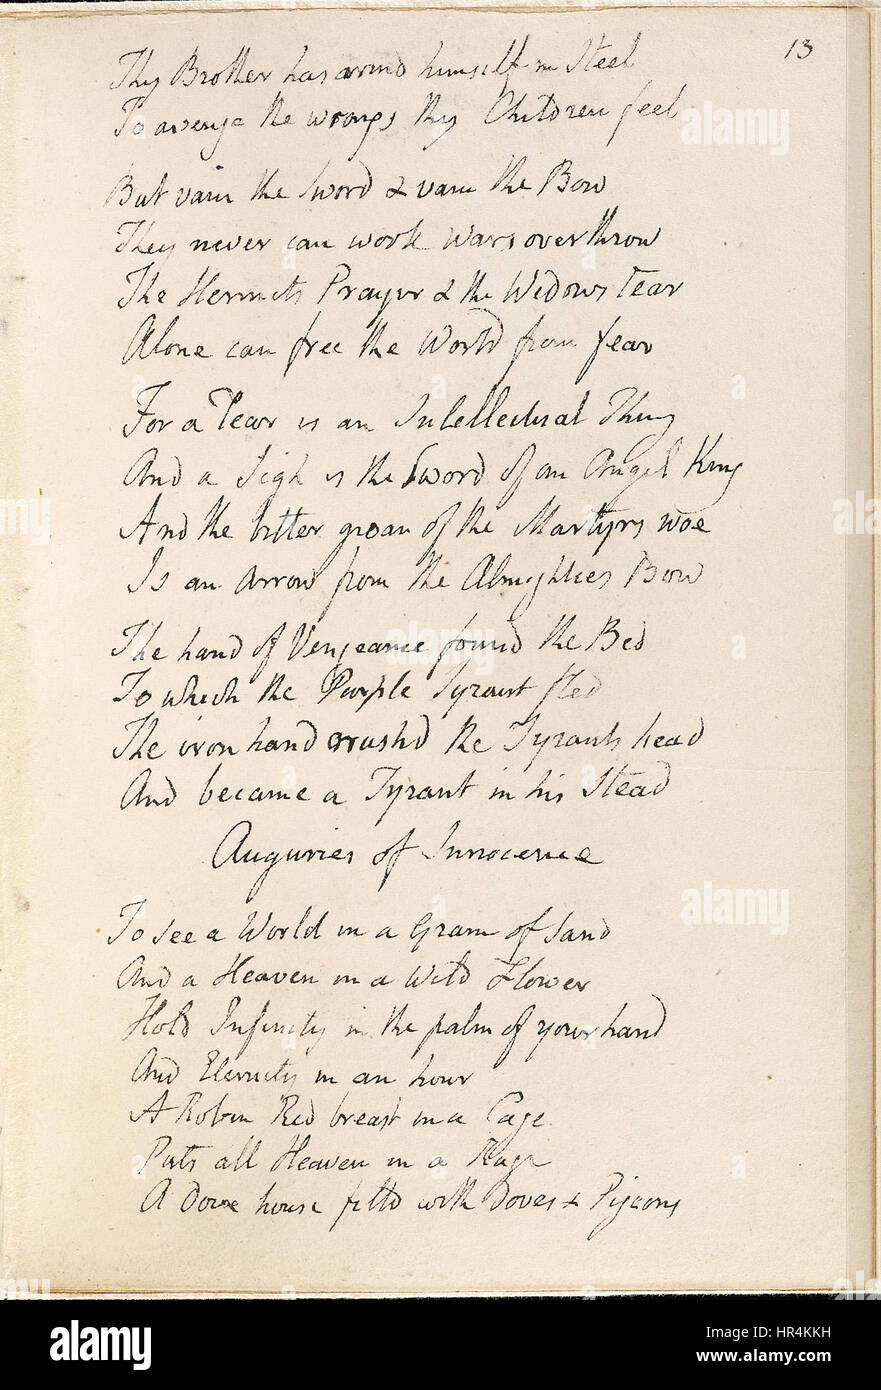 13
Thy Brother has armd himself in Steel
To avenge the wrongs thy Children feel
But vain the Sword & vain the Bow
They never can work Wars overthrow
The Hermits Prayer & the Widows tear
Alone can free the World from fear
For a Tear is an Intellectual Thing
And a Sigh is the Sword of an Angel King
And the bitter groan of the Martyrs woe
Is an Arrow from the Almighties Bow
The hand of Vengeance found the Bed
To which the Purple Tyrant fled
The iron hand crushd the Tyrants head
And became a Tyrant in his Stead
Auguries of Innocence
To see a World in a Grain of Sand
And a Heaven in a Wild Flower
Hold Infinity in the palm of your hand
And Eternity in an hour
A Robin Red breast in a Cage
Puts all Heaven in a Rage
A Dove house filld with Doves & Pigeons
alamy
Image ID: HR4KKH
www.alamy.com